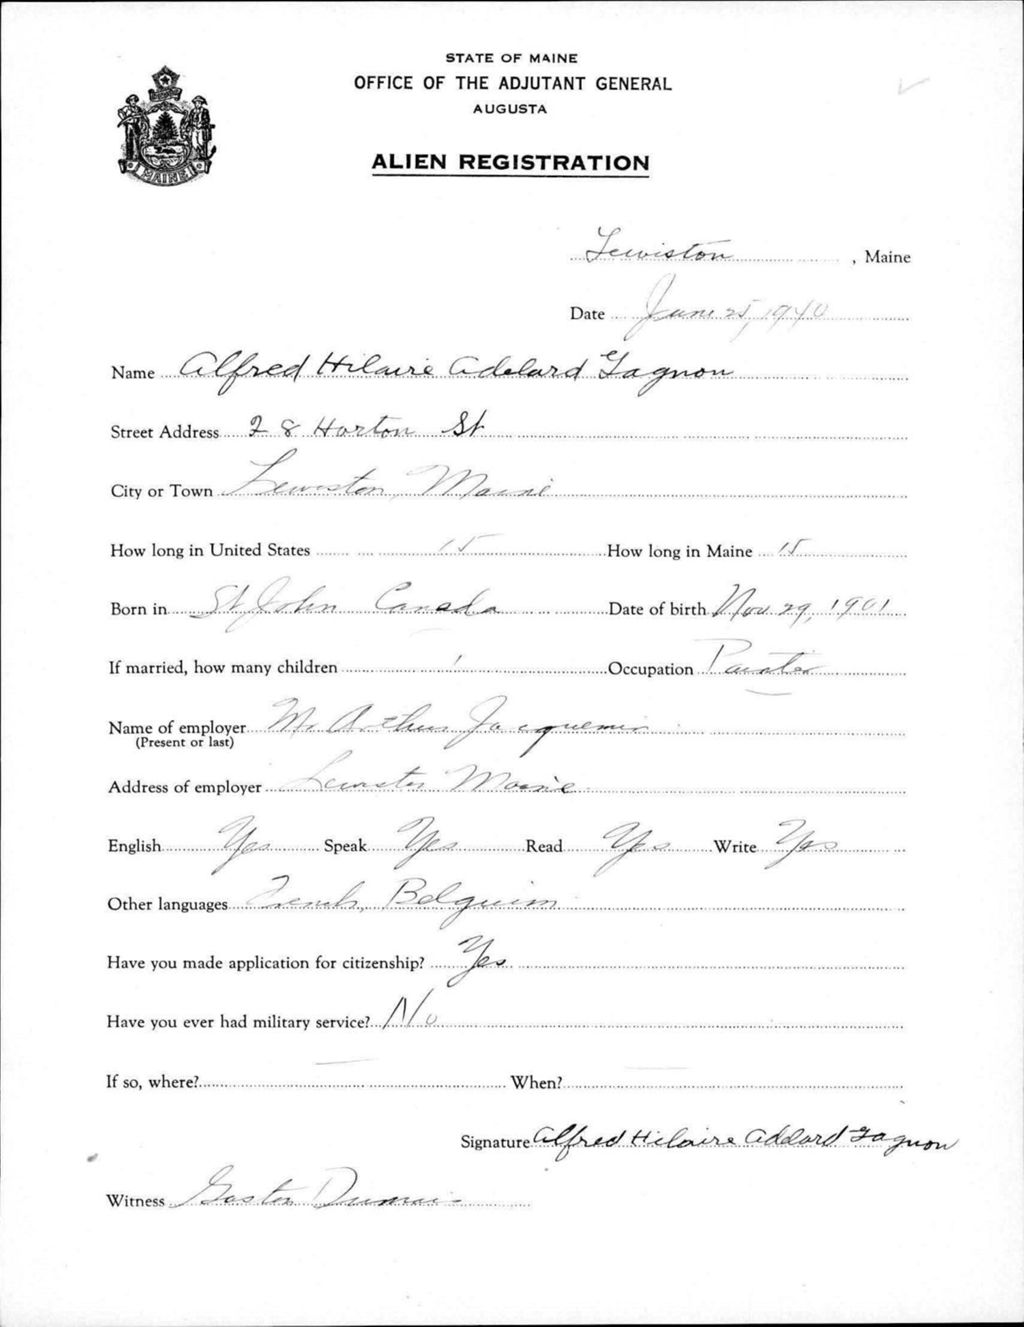 STATE OF MAINE
OFFICE OF THE ADJUTANT GENERAL
AUGUSTA
ALIEN REGISTRATION
MAINE
Lewiston, Maine
Date June 25, 1940
Name Alfred Hilaire Adelard Gagnon
Street Address 28 Horton St
City or Town Lewiston, Maine
How long in United States 15 How long in Maine 15
Born in St John Canada Date of birth Nov 29, 1901
If married, how many children 1 Occupation Painter
Name of employer Mr Arthur Jacquemin
(Present or last)
Address of employer Lewiston Maine
English Yes Speak Yes Read Yes Write Yes
Other languages French, Belguim
Have you made application for citizenship? Yes
Have you ever had military service? No
If so, where? — When? —
Signature Alfred Hilaire Adelard Gagnon
Witness Gaston Dumais